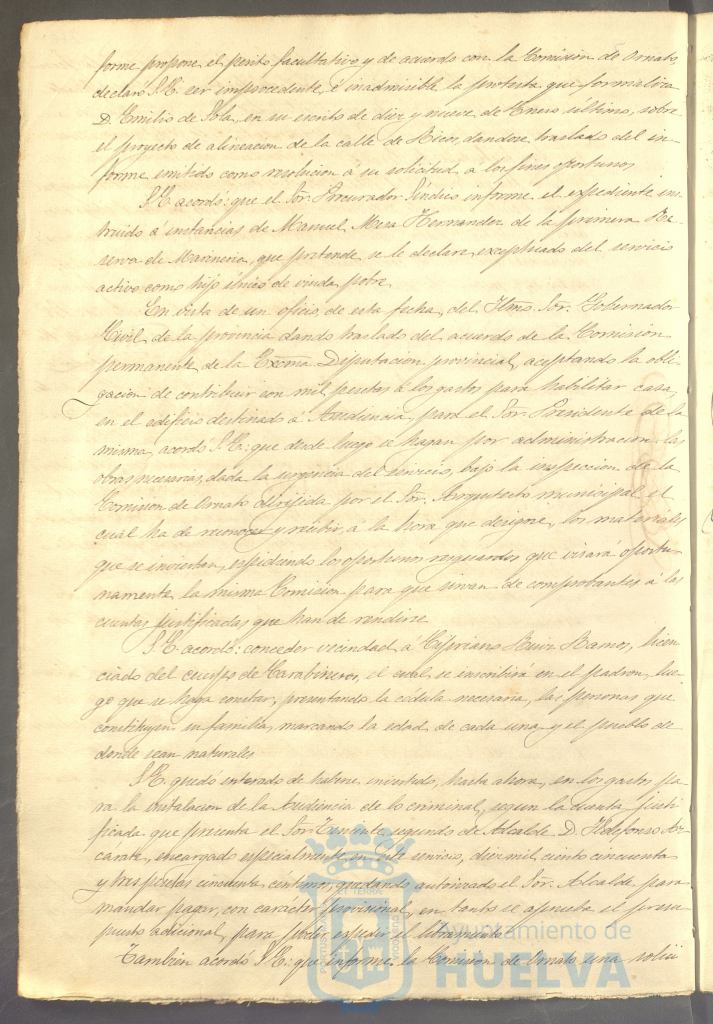 forme propone el perito facultativo y de acuerdo con la Comision de Ornato,
declaró S.E. ser improcedente é inadmisible la protesta que formaliza
D. Emilio de Sola, en su escrito de diez y nueve de Enero ultimo, sobre
el proyecto de alineacion de la calle de Ricos, dandose traslado del in-
forme emitido como resolucion á su solicitud á los fines oportunos.
S.E. acordó: que el Sor. Procurador Sindico informe el expediente ins
truido á instancias de Manuel Mesa Hernandez de la primera Re-
serva de Marineria, que pretende se le declare exceptuado del servicio
activo como hijo único de viuda pobre.
En vista de un oficio de esta fecha, del Iltmo. Sor. Gobernador
Civil de la provincia dando traslado del acuerdo de la Comision
permanente de la Excma. Diputacion provincial, aceptando la obli-
gacion de contribuir con mil pesetas á los gastos para habilitar casa,
en el edificio destinado á Audiencia, para el Sor. Presidente de la
misma, acordó S.E.: que desde luego se hagan por administracion las
obras necesarias, dada la urgencia del servicio, bajo la inspeccion de la
Comision de Ornato dirigida por el Sor. Arquitecto municipal el
cual ha de reconocer y recibir, á la hora que designe, los materiales
que se inviertan, expidiendo los oportunos resguardos que visará oportu-
namente la misma Comision para que sirvan de comprobantes á las
cuentas justificadas que han de rendirse.
S.E. acordó: conceder vecindad á Cipriano Ruiz Ramos, licen
ciado del cuerpo de Carabineros, el cual se inscribirá en el padron, lue-
go que se haga constar, presentando la cédula necesaria, las personas que
constituyen su familia, marcando la edad de cada una y el pueblo de
donde sean naturales.
S.E. quedó enterado de haberse invertido, hasta ahora, en los gastos pa-
ra la instalacion de la Audiencia de lo criminal, segun la cuenta justi-
ficada que presenta el Sor. Teniente segundo de Alcalde D. Ildefonso Az-
cárate, encargado especialmente en este servicio, diez mil, ciento cincuenta
y tres pesetas cincuenta céntimos, quedando autorizado el Sor. Alcalde para
mandar pagar, con carácter provisional, en tanto se aprueba el presu
puesto adicional, para poder expedir el libramiento.
Tambien acordó S.E.: que informe la Comision de Ornato una solici
Ayuntamiento de
HUELVA